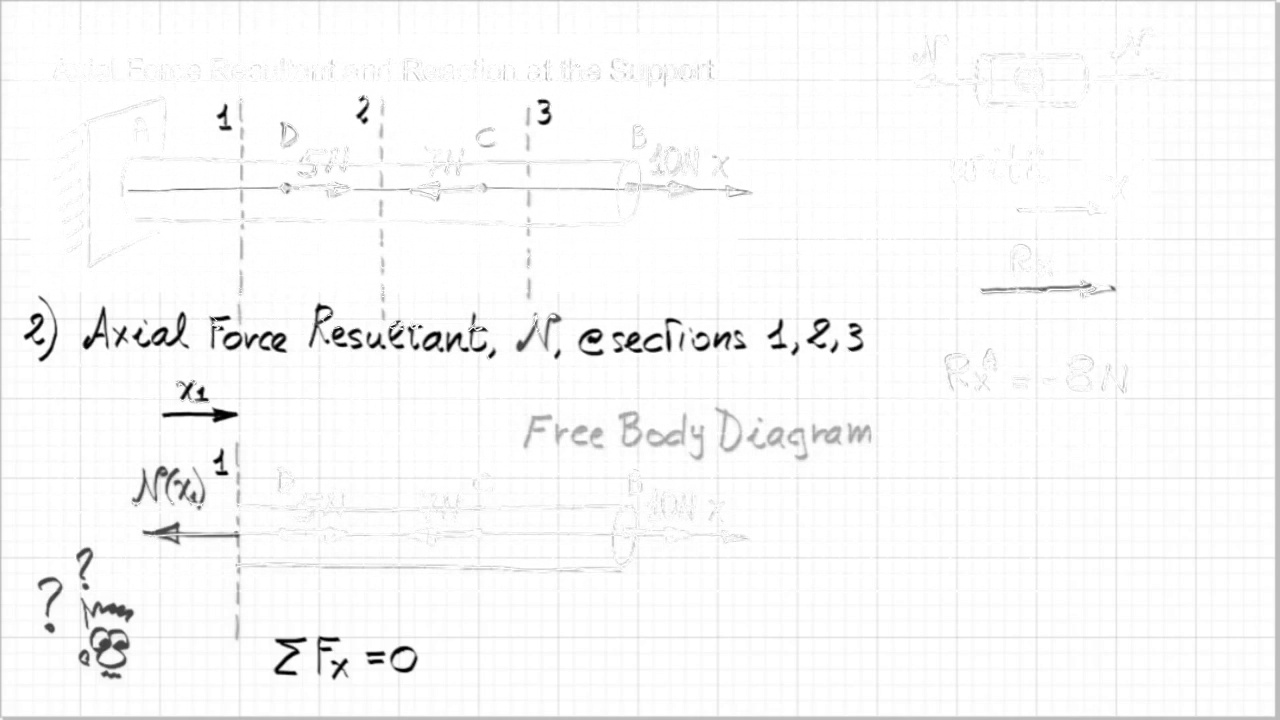 Axial Force Resultant and Reaction at the Support
N N
1 2 3
A D C B
5N 7N 10N x
write
x
Rx
2) Axial Force Resultant, N, @ sections 1, 2, 3
RxA = -8N
x1
Free Body Diagram
N(x1) 1
D C B
5N 7N 10N x
? ?
ΣFx = 0